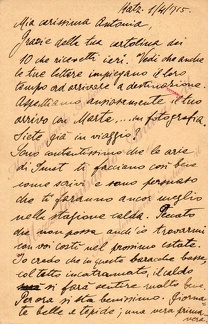 Hatz. 1/4/915.
Mia carissima Antonia,
Grazie della tua cartolina dei
10 che ricevetti ieri. Vedi che anche
le tue lettere impiegano il loro
tempo ad arrivare a destinazione.
Aspettiamo ansiosamente il tuo
arrivo con Marta,... in fotografia.
Siete già in viaggio?
Sono contentissimo che le arie
di ti facciano così bene
come scrivi e sono persuaso
che ti faranno ancor meglio
nella stagione calda. Peccato
che non possa anch'io trovarmi
con voi costì nel prossimo estate.
Io credo che in queste baracche basse,
col tetto incatramato, il caldo
si farà sentire molto bene.
Perora si sta benissimo. Giorna-
te belle e tepide; una vera prima-
vera.